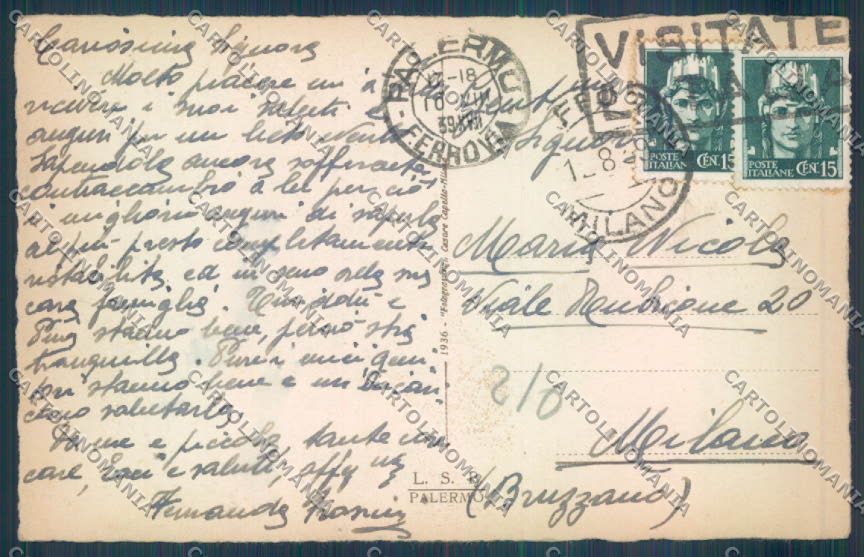 Carissima Signora
Molto piacere mi à
ricevere i suoi saluti e
auguri per un lieto evento
Sapendola ancora sofferente
contraccambio a lei perciò
i migliori auguri di saperla
al più presto completamente
ristabilita ed in seno della sua
cara famiglia.
Pina stanno bene, perciò stia
tranquilla. Pure i miei
stanno bene e
salutarla
e piccola tante cose
care, baci e saluti, aff
Fernanda
PALERMO
17-18
10 VIII
39 XVII
FERROVIA
VISITATE
MILANO
POSTE ITALIANE CEN. 15
POSTE ITALIANE CEN. 15
Signora
Maria Nicola
Viale Rubicone 20
210
Milano
(Bruzzano)
1936 - "Fotogravure" Cesare Capello-Milano
L. S. P.
PALERMO
CARTOLINOMANIA